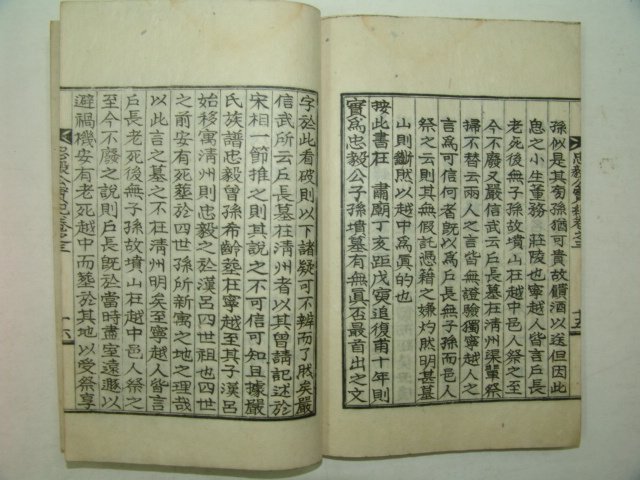 孫似是其旁孫猶可貴故饋酒以送但因此
息之小生董務 莊陵也寧越人皆言戶長
老死後無子孫故墳山在越中邑人祭之至
今不廢又嚴信武云戶長墓在淸州渠輩祭
掃不替云兩人之言皆無證驗獨寧越人之
言爲可信何者旣以爲戶長無子孫而邑人
祭之云則其無假託憑藉之嫌灼然明甚墓
山則斷然以越中爲眞的也
按此書在 肅廟丁亥距戊寅追復甫十年則
實爲忠毅公子孫墳墓有無眞否最首出之文
字於此看破則以下諸疑可不辨而了然矣嚴
信武所云戶長墓在淸州者以其曾請記述於
宋相一節推之則其說之不可信可知且據嚴
氏族譜忠毅曾孫希齡葬在寧越至其子漢呂
始移寓淸州則忠毅之於漢呂四世祖也四世
之前安有死葬於四世孫所新寓之地之理哉
以此言之墓之不在淸州明矣至寧越皆言
戶長死後無子孫故墳山在越中邑人祭之
至今不廢之說則戶長旣於當時盡室遠遯以
避禍機安有老死越中而葬於其地以受祭享
忠毅公實紀卷之三
十六